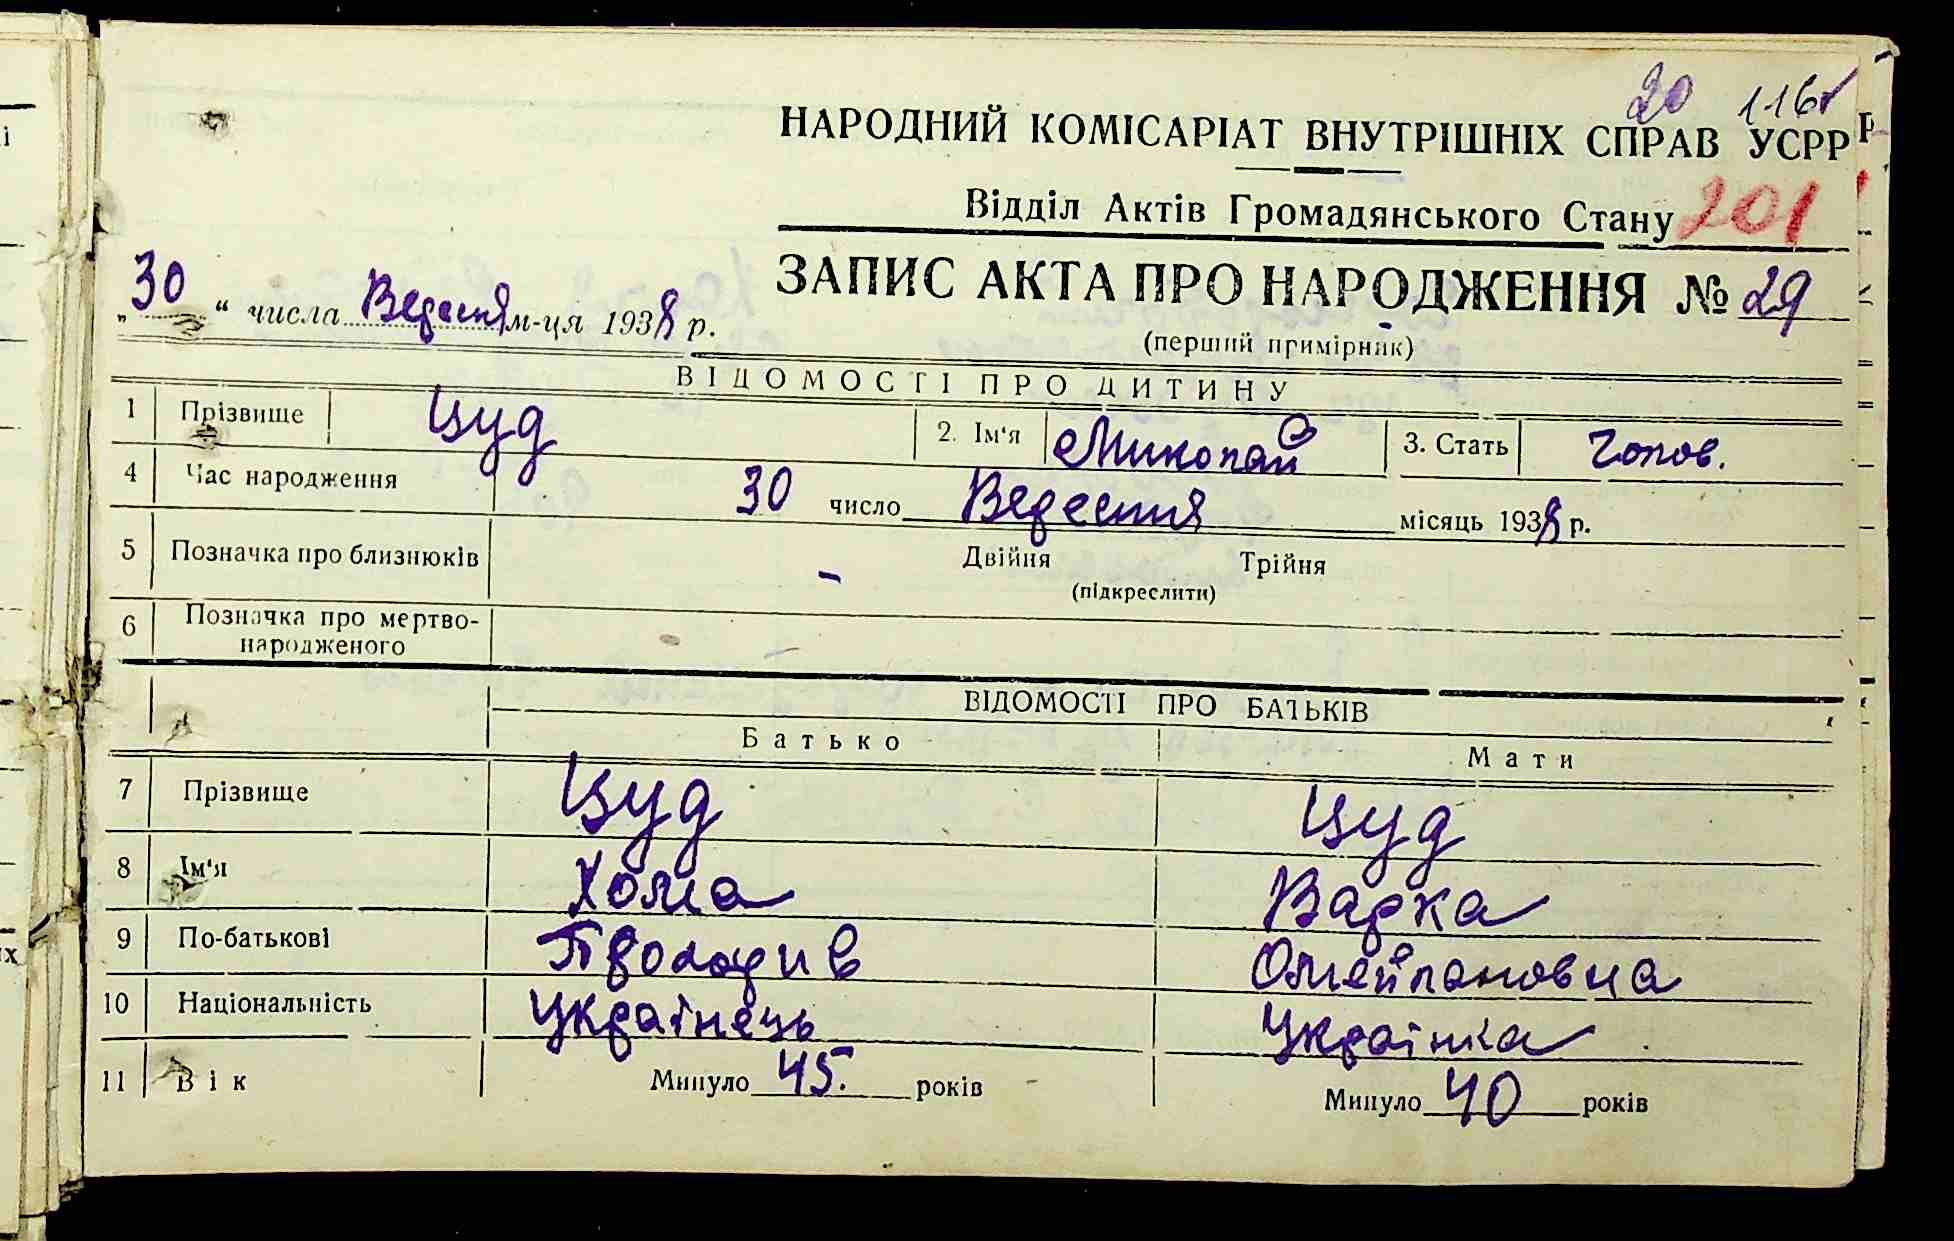 20 116
НАРОДНИЙ КОМІСАРІАТ ВНУТРІШНІХ СПРАВ УСРР
Відділ Актів Громадянського Стану 201
ЗАПИС АКТА ПРО НАРОДЖЕННЯ № 29
(перший примірник)
„30“ числа Вересня м-ця 1938 р.
ВІДОМОСТІ ПРО ДИТИНУ
1 Прізвище Цуд 2. Ім'я Миколай 3. Стать Чолов.
4 Час народження 30 число Вересня місяць 1938 р.
5 Позначка про близнюків - Двійня Трійня
(підкреслити)
6 Позначка про мертво-
народженого
ВІДОМОСТІ ПРО БАТЬКІВ
Батько Мати
7 Прізвище Цуд Цуд
8 Ім'я Хома Варка
9 По-батькові
10 Національність Українець Українка
11 Вік Минуло 45. років Минуло 40 років